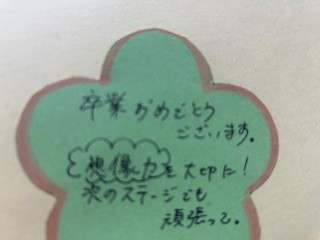 卒業おめでとう
ございます。
想像力を大切に!
次のステージでも
頑張って。